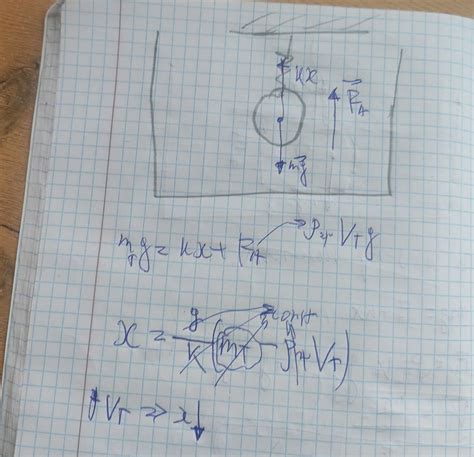 kx
F_A
mg
m_т g = kx + F_A → ρ_ж V_т g
x = g/k (m_т - ρ_ж V_т)
const
↑V_т ⇒ x↓